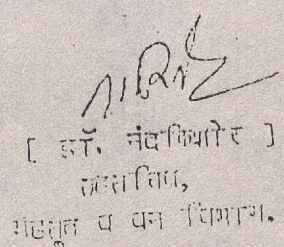 [ डॉ. नंदकिशोर ]
उपसचिव,
महसूल व वन विभाग.